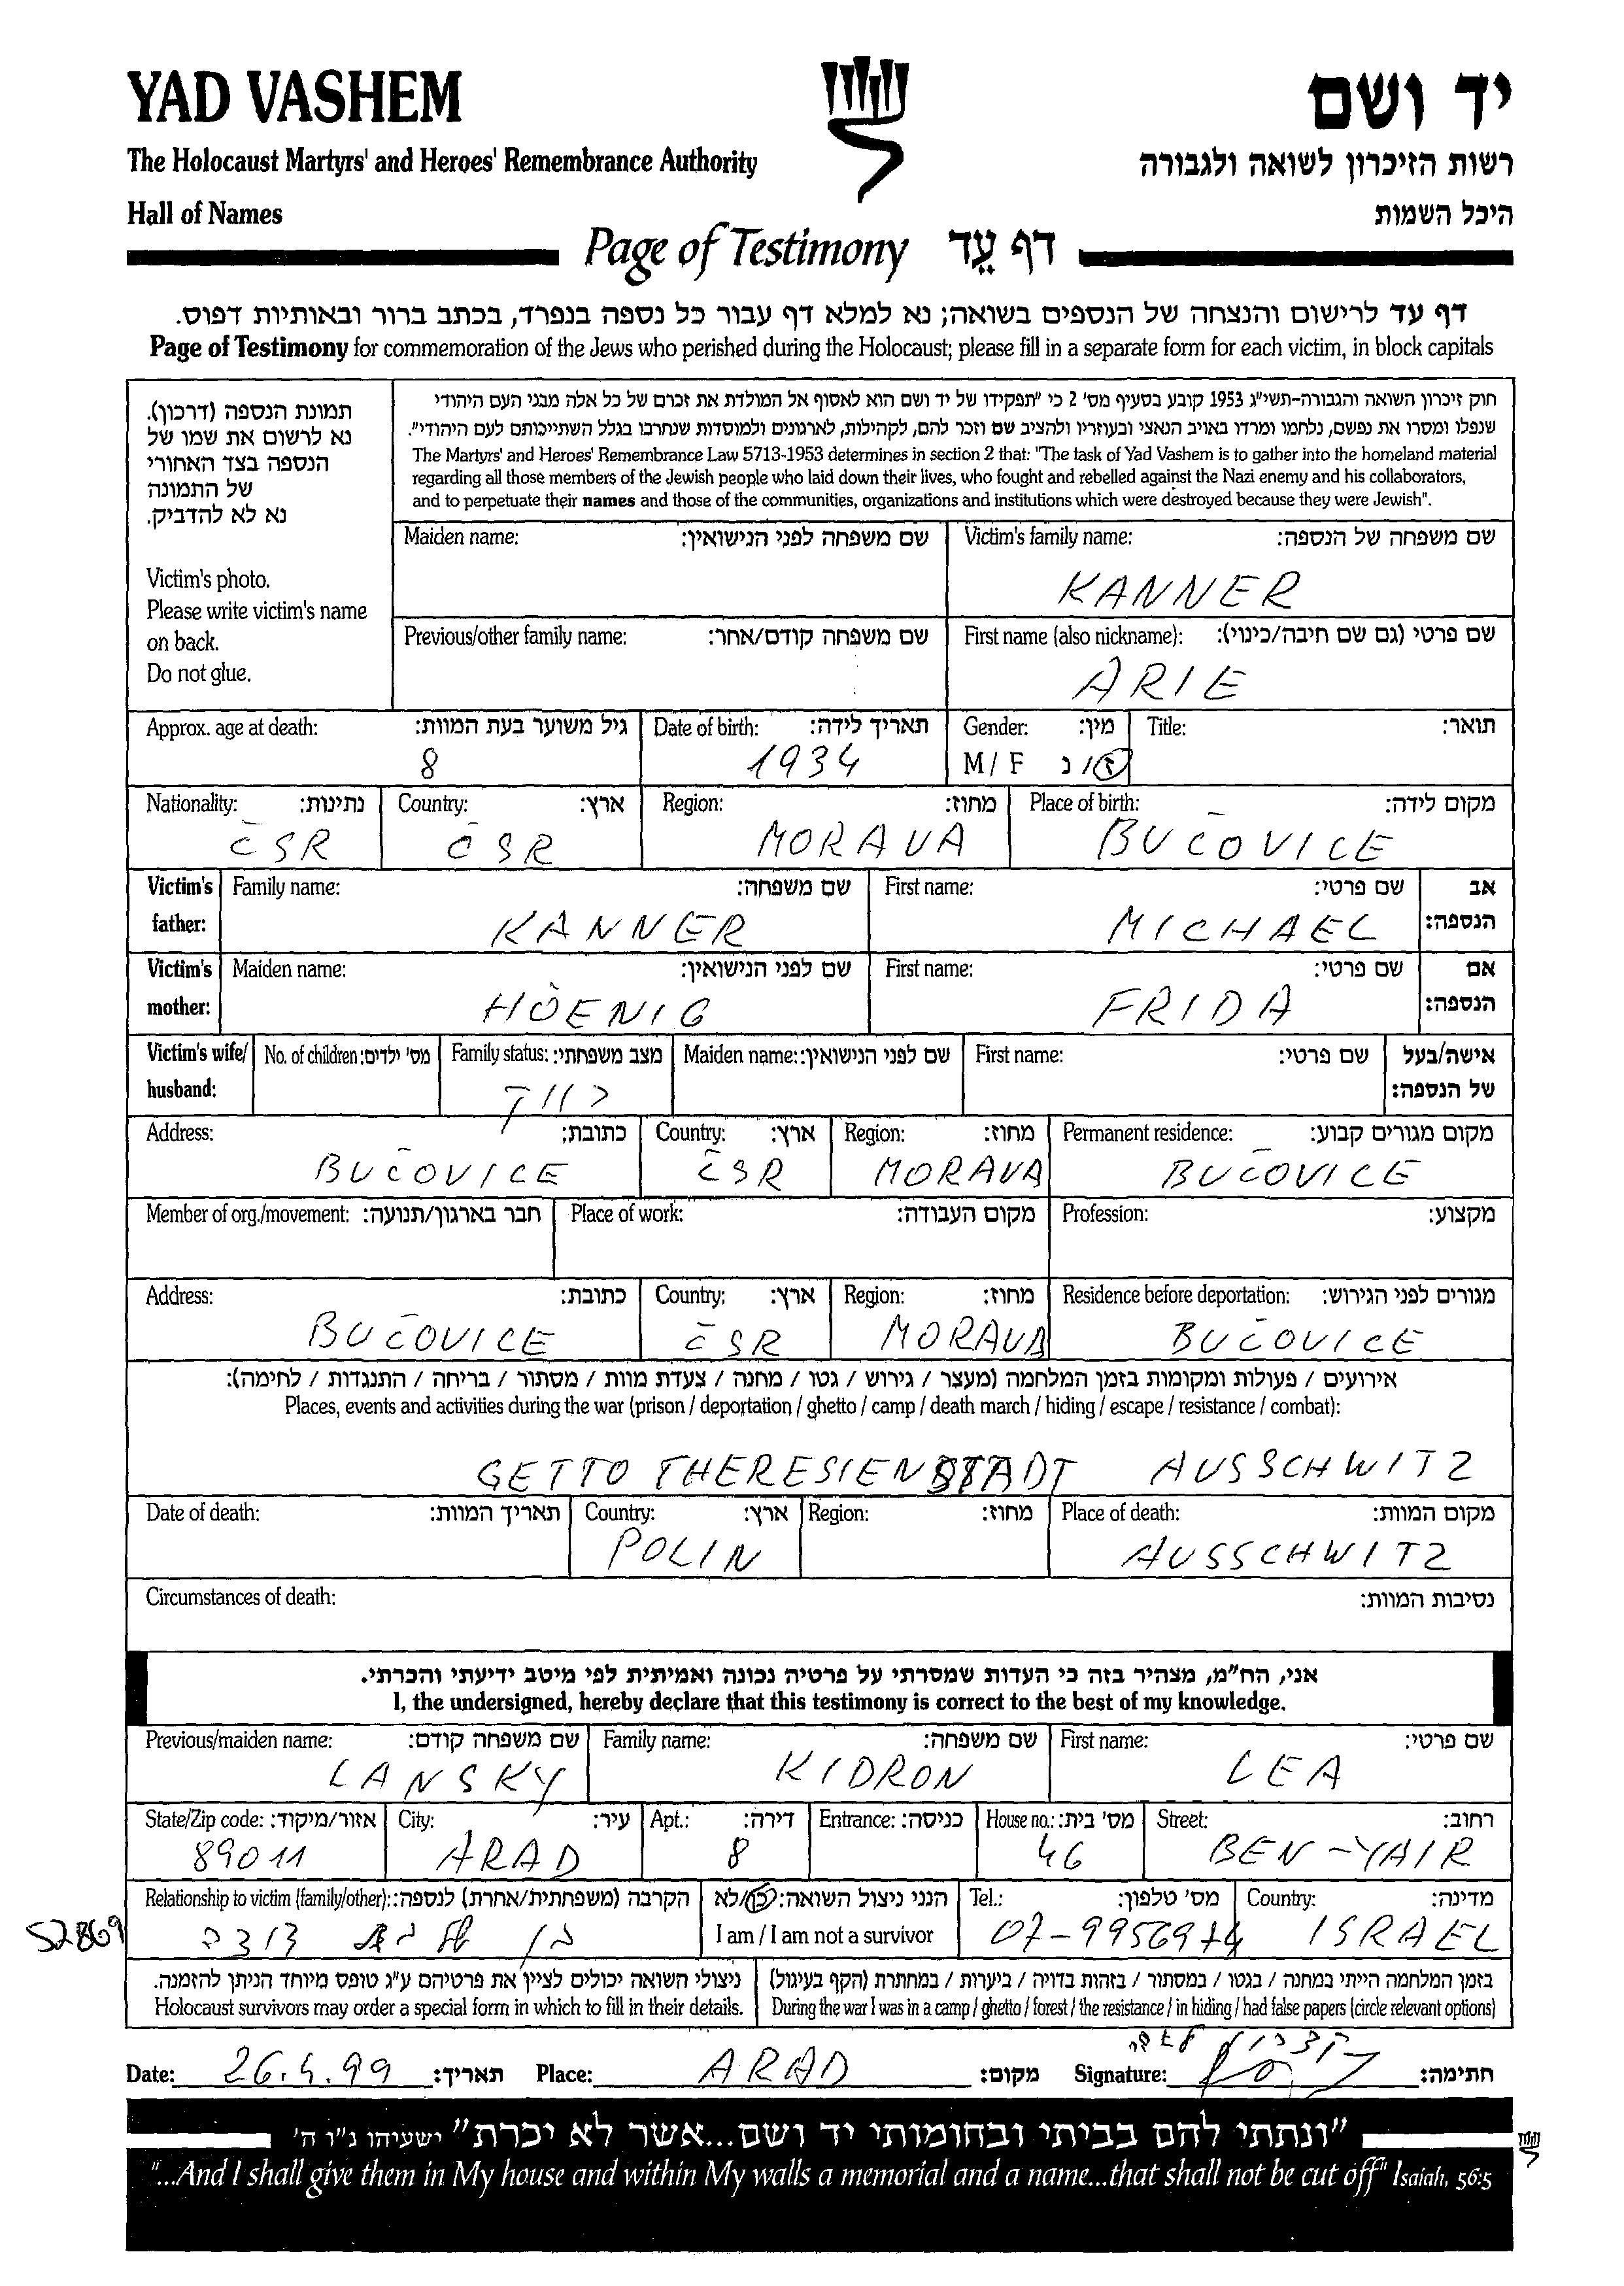 YAD VASHEM
יד ושם
The Holocaust Martyrs' and Heroes' Remembrance Authority
רשות הזיכרון לשואה ולגבורה
Hall of Names
היכל השמות
Page of Testimony דף עֵד
דף עד לרישום והנצחה של הנספים בשואה; נא למלא דף עבור כל נספה בנפרד, בכתב ברור ובאותיות דפוס.
Page of Testimony for commemoration of the Jews who perished during the Holocaust; please fill in a separate form for each victim, in block capitals
תמונת הנספה (דרכון).
נא לרשום את שמו של
הנספה בצד האחורי
של התמונה
נא לא להדביק.
Victim's photo.
Please write victim's name
on back.
Do not glue.
חוק זיכרון השואה והגבורה-תשי"ג 1953 קובע בסעיף מס' 2 כי "תפקידו של יד ושם הוא לאסוף אל המולדת את זכרם של כל אלה מבני העם היהודי
שנפלו ומסרו את נפשם, נלחמו ומרדו באויב הנאצי ובעוזריו ולהציב שם וזכר להם, לקהילות, לארגונים ולמוסדות שנחרבו בגלל השתייכותם לעם היהודי".
The Martyrs' and Heroes' Remembrance Law 5713-1953 determines in section 2 that: "The task of Yad Vashem is to gather into the homeland material
regarding all those members of the Jewish people who laid down their lives, who fought and rebelled against the Nazi enemy and his collaborators,
and to perpetuate their names and those of the communities, organizations and institutions which were destroyed because they were Jewish".
Maiden name: שם משפחה לפני הנישואין: Victim's family name: שם משפחה של הנספה:
KANNER
Previous/other family name: שם משפחה קודם/אחר: First name (also nickname): שם פרטי (גם שם חיבה/כינוי):
ARIE
Approx. age at death: גיל משוער בעת המוות: Date of birth: תאריך לידה: Gender: מין: Title: תואר:
8 1934 M / F ז/נ
Nationality: נתינות: Country: ארץ: Region: מחוז: Place of birth: מקום לידה:
ČSR ČSR MORAVA BUČOVICE
Victim's father: Family name: שם משפחה: First name: שם פרטי: אב הנספה:
KANNER MICHAEL
Victim's mother: Maiden name: שם לפני הנישואין: First name: שם פרטי: אם הנספה:
HÖENIG FRIDA
Victim's wife/ husband: No. of children: מס' ילדים: Family status: מצב משפחתי: Maiden name: שם לפני הנישואין: First name: שם פרטי: אישה/בעל של הנספה:
רווק
Address: כתובת: Country: ארץ: Region: מחוז: Permanent residence: מקום מגורים קבוע:
BUČOVICE ČSR MORAVA BUČOVICE
Member of org./movement: חבר בארגון/תנועה: Place of work: מקום העבודה: Profession: מקצוע:
Address: כתובת: Country: ארץ: Region: מחוז: Residence before deportation: מגורים לפני הגירוש:
BUČOVICE ČSR MORAVA BUČOVICE
אירועים / פעולות ומקומות בזמן המלחמה (מעצר / גירוש / גטו / מחנה / צעדת מוות / מסתור / בריחה / התנגדות / לחימה):
Places, events and activities during the war (prison / deportation / ghetto / camp / death march / hiding / escape / resistance / combat):
GETTO THERESIENSTADT AUSSCHWITZ
Date of death: תאריך המוות: Country: ארץ: Region: מחוז: Place of death: מקום המוות:
POLIN AUSSCHWITZ
Circumstances of death: נסיבות המוות:
אני, הח"מ, מצהיר בזה כי העדות שמסרתי על פרטיה נכונה ואמיתית לפי מיטב ידיעתי והכרתי.
I, the undersigned, hereby declare that this testimony is correct to the best of my knowledge.
Previous/maiden name: שם משפחה קודם: Family name: שם משפחה: First name: שם פרטי:
LANSKY KIDRON LEA
State/Zip code: אזור/מיקוד: City: עיר: Apt.: דירה: Entrance: כניסה: House no.: מס' בית: Street: רחוב:
89011 ARAD 8 46 BEN-YAIR
Relationship to victim (family/other): הקרבה (משפחתית/אחרת) לנספה: הנני ניצול השואה: כן/לא Tel.: מס' טלפון: Country: מדינה:
52869 בן דוד I am / I am not a survivor 07-9956974 ISRAEL
ניצולי השואה יכולים לציין את פרטיהם ע"ג טופס מיוחד הניתן להזמנה.
Holocaust survivors may order a special form in which to fill in their details.
בזמן המלחמה הייתי במחנה / בגטו / במסתור / בזהות בדויה / ביערות / במחתרת (הקף בעיגול)
During the war I was in a camp / ghetto / forest / the resistance / in hiding / had false papers (circle relevant options)
Date: 26.4.99 תאריך: Place: ARAD מקום: Signature: חתימה:
"ונתתי להם בביתי ובחומותי יד ושם...אשר לא יכרת" ישעיהו נ"ו ה'
"...And I shall give them in My house and within My walls a memorial and a name...that shall not be cut off" Isaiah, 56:5